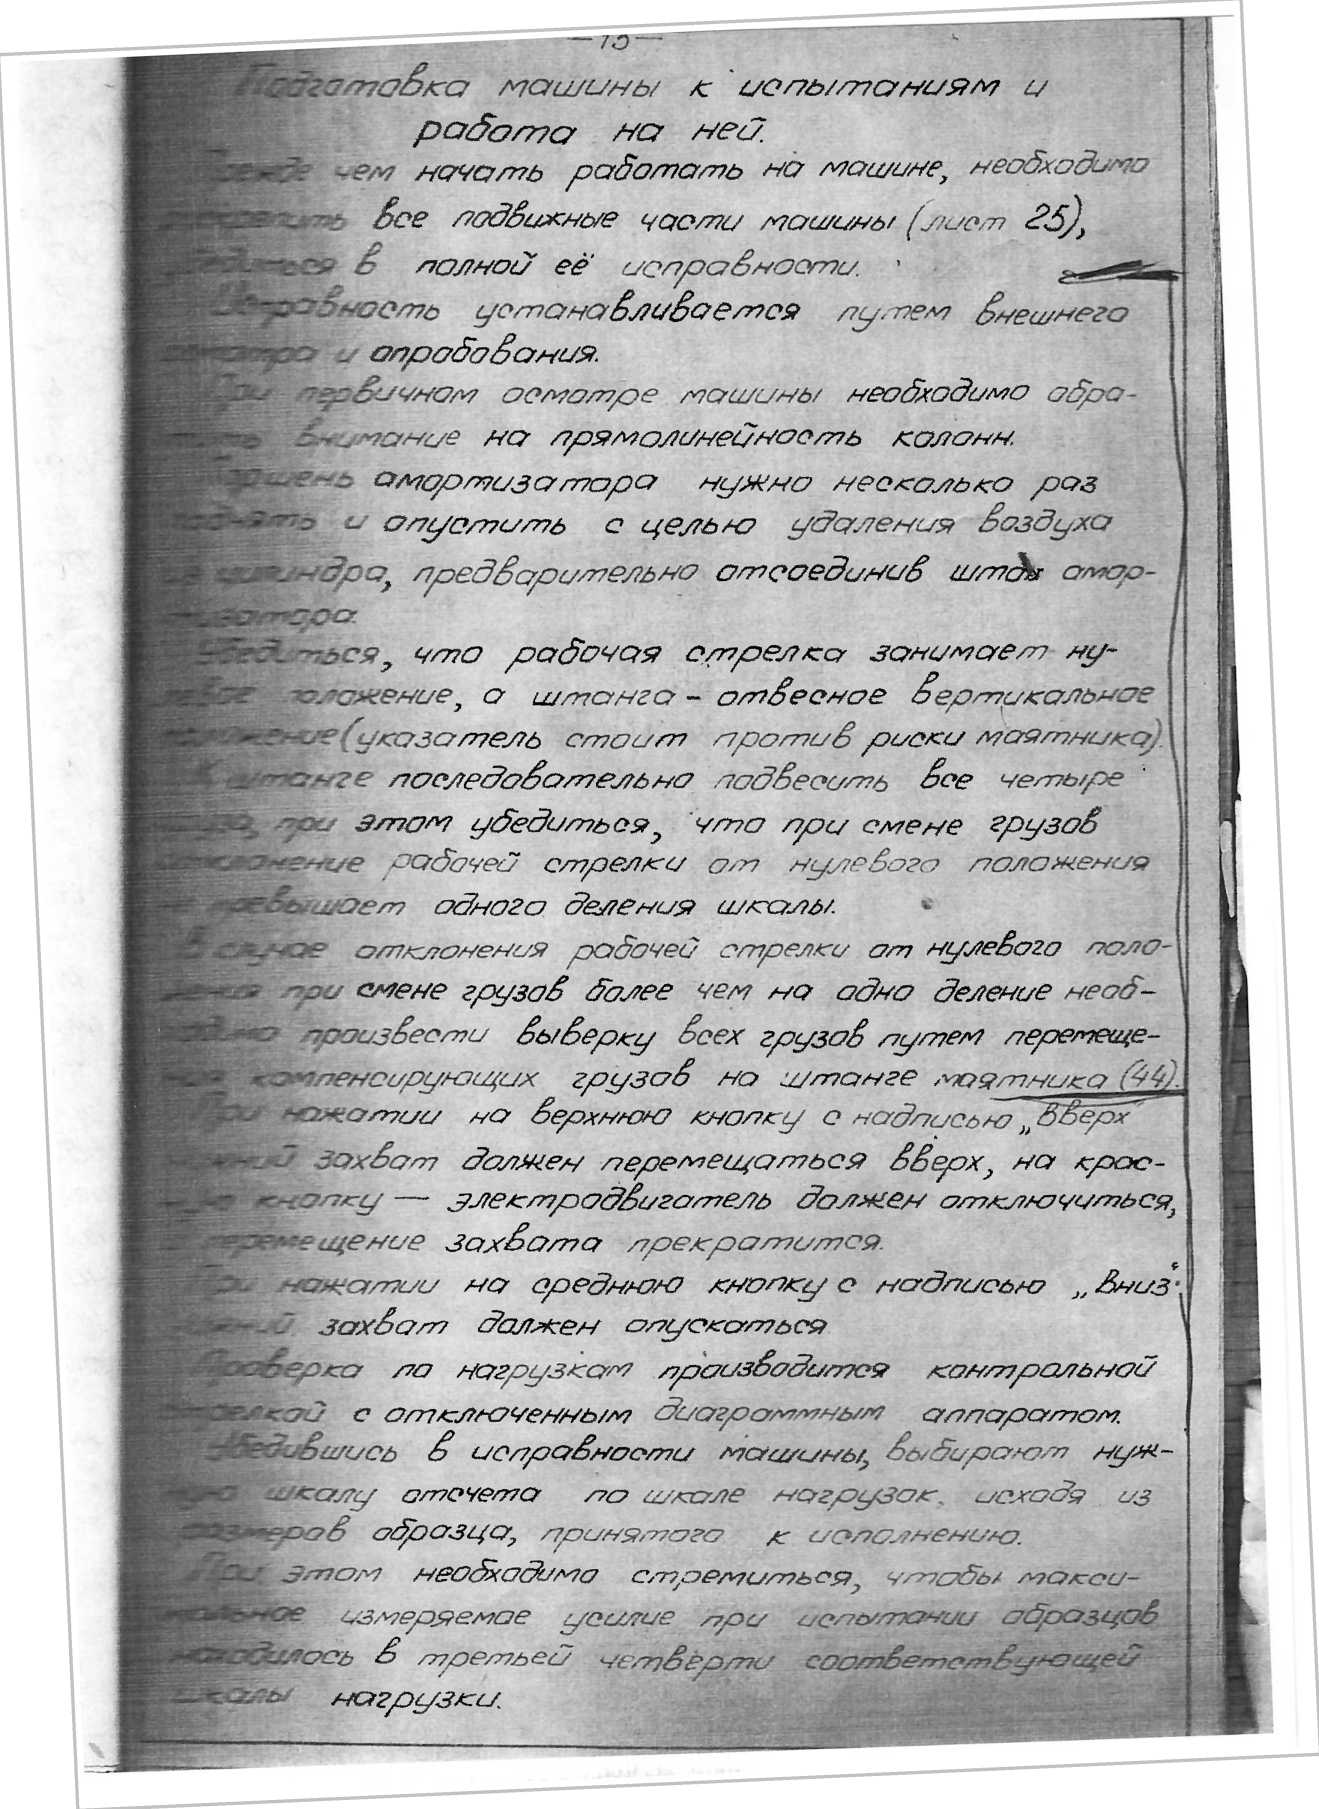 —15—
Подготовка машины к испытаниям и
работа на ней.
Прежде чем начать работать на машине, необходимо
все подвижные части машины (лист 25),
в полной её исправности.
Исправность устанавливается путем внешнего
осмотра и опробования.
При первичном осмотре машины необходимо обра-
тить внимание на прямолинейность колонн.
Поршень амортизатора нужно несколько раз
поднять и опустить с целью удаления воздуха
цилиндра, предварительно отсоединив шток амор-
тизатора.
Убедиться, что рабочая стрелка занимает ну-
левое положение, а штанга – отвесное вертикальное
положение (указатель стоит против риски маятника).
К штанге последовательно подвесить все четыре
при этом убедиться, что при смене грузов
отклонение рабочей стрелки от нулевого положения
не превышает одного деления шкалы.
В случае отклонения рабочей стрелки от нулевого поло-
жения при смене грузов более чем на одно деление необ-
ходимо произвести выверку всех грузов путем перемеще-
ния компенсирующих грузов на штанге маятника (44).
При нажатии на верхнюю кнопку с надписью „Вверх"
нижний захват должен перемещаться вверх, на крас-
ную кнопку — электродвигатель должен отключиться,
перемещение захвата прекратится.
При нажатии на среднюю кнопку с надписью „Вниз"
нижний захват должен опускаться
Проверка по нагрузкам производится контрольной
стрелкой с отключенным диаграммным аппаратом.
Убедившись в исправности машины, выбирают нуж-
ную шкалу отсчета по шкале нагрузок, исходя из
размеров образца, принятого к исполнению.
При этом необходимо стремиться, чтобы макси-
мальное измеряемое усилие при испытании образцов
находилось в третьей четверти соответствующей
шкалы нагрузки.